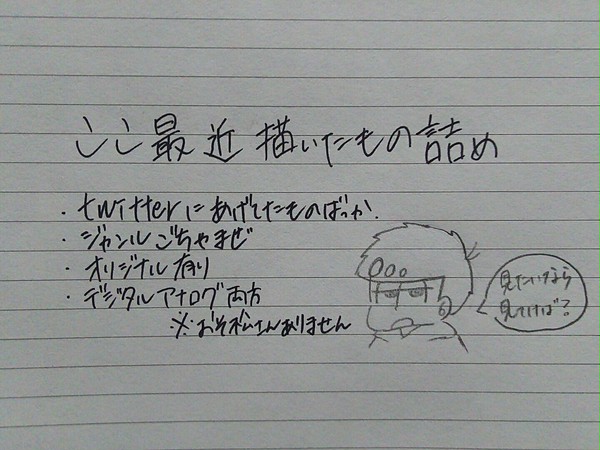 ここ最近描いたもの詰め
・twitterにあげてたものばっか
・ジャンルごちゃまぜ
・オリジナル有り
・デジタルアナログ両方
※おそ松さんありません
見たいなら
見てけば?